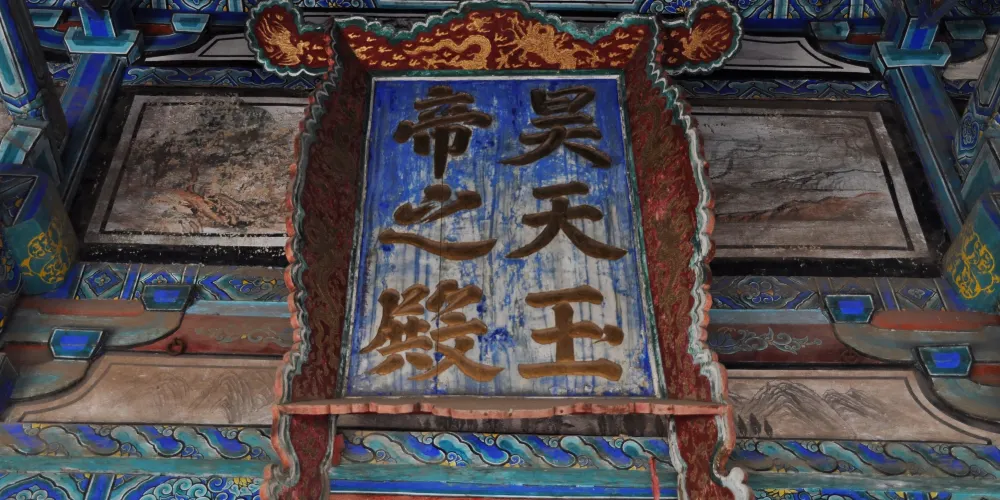 昊天玉
帝之殿